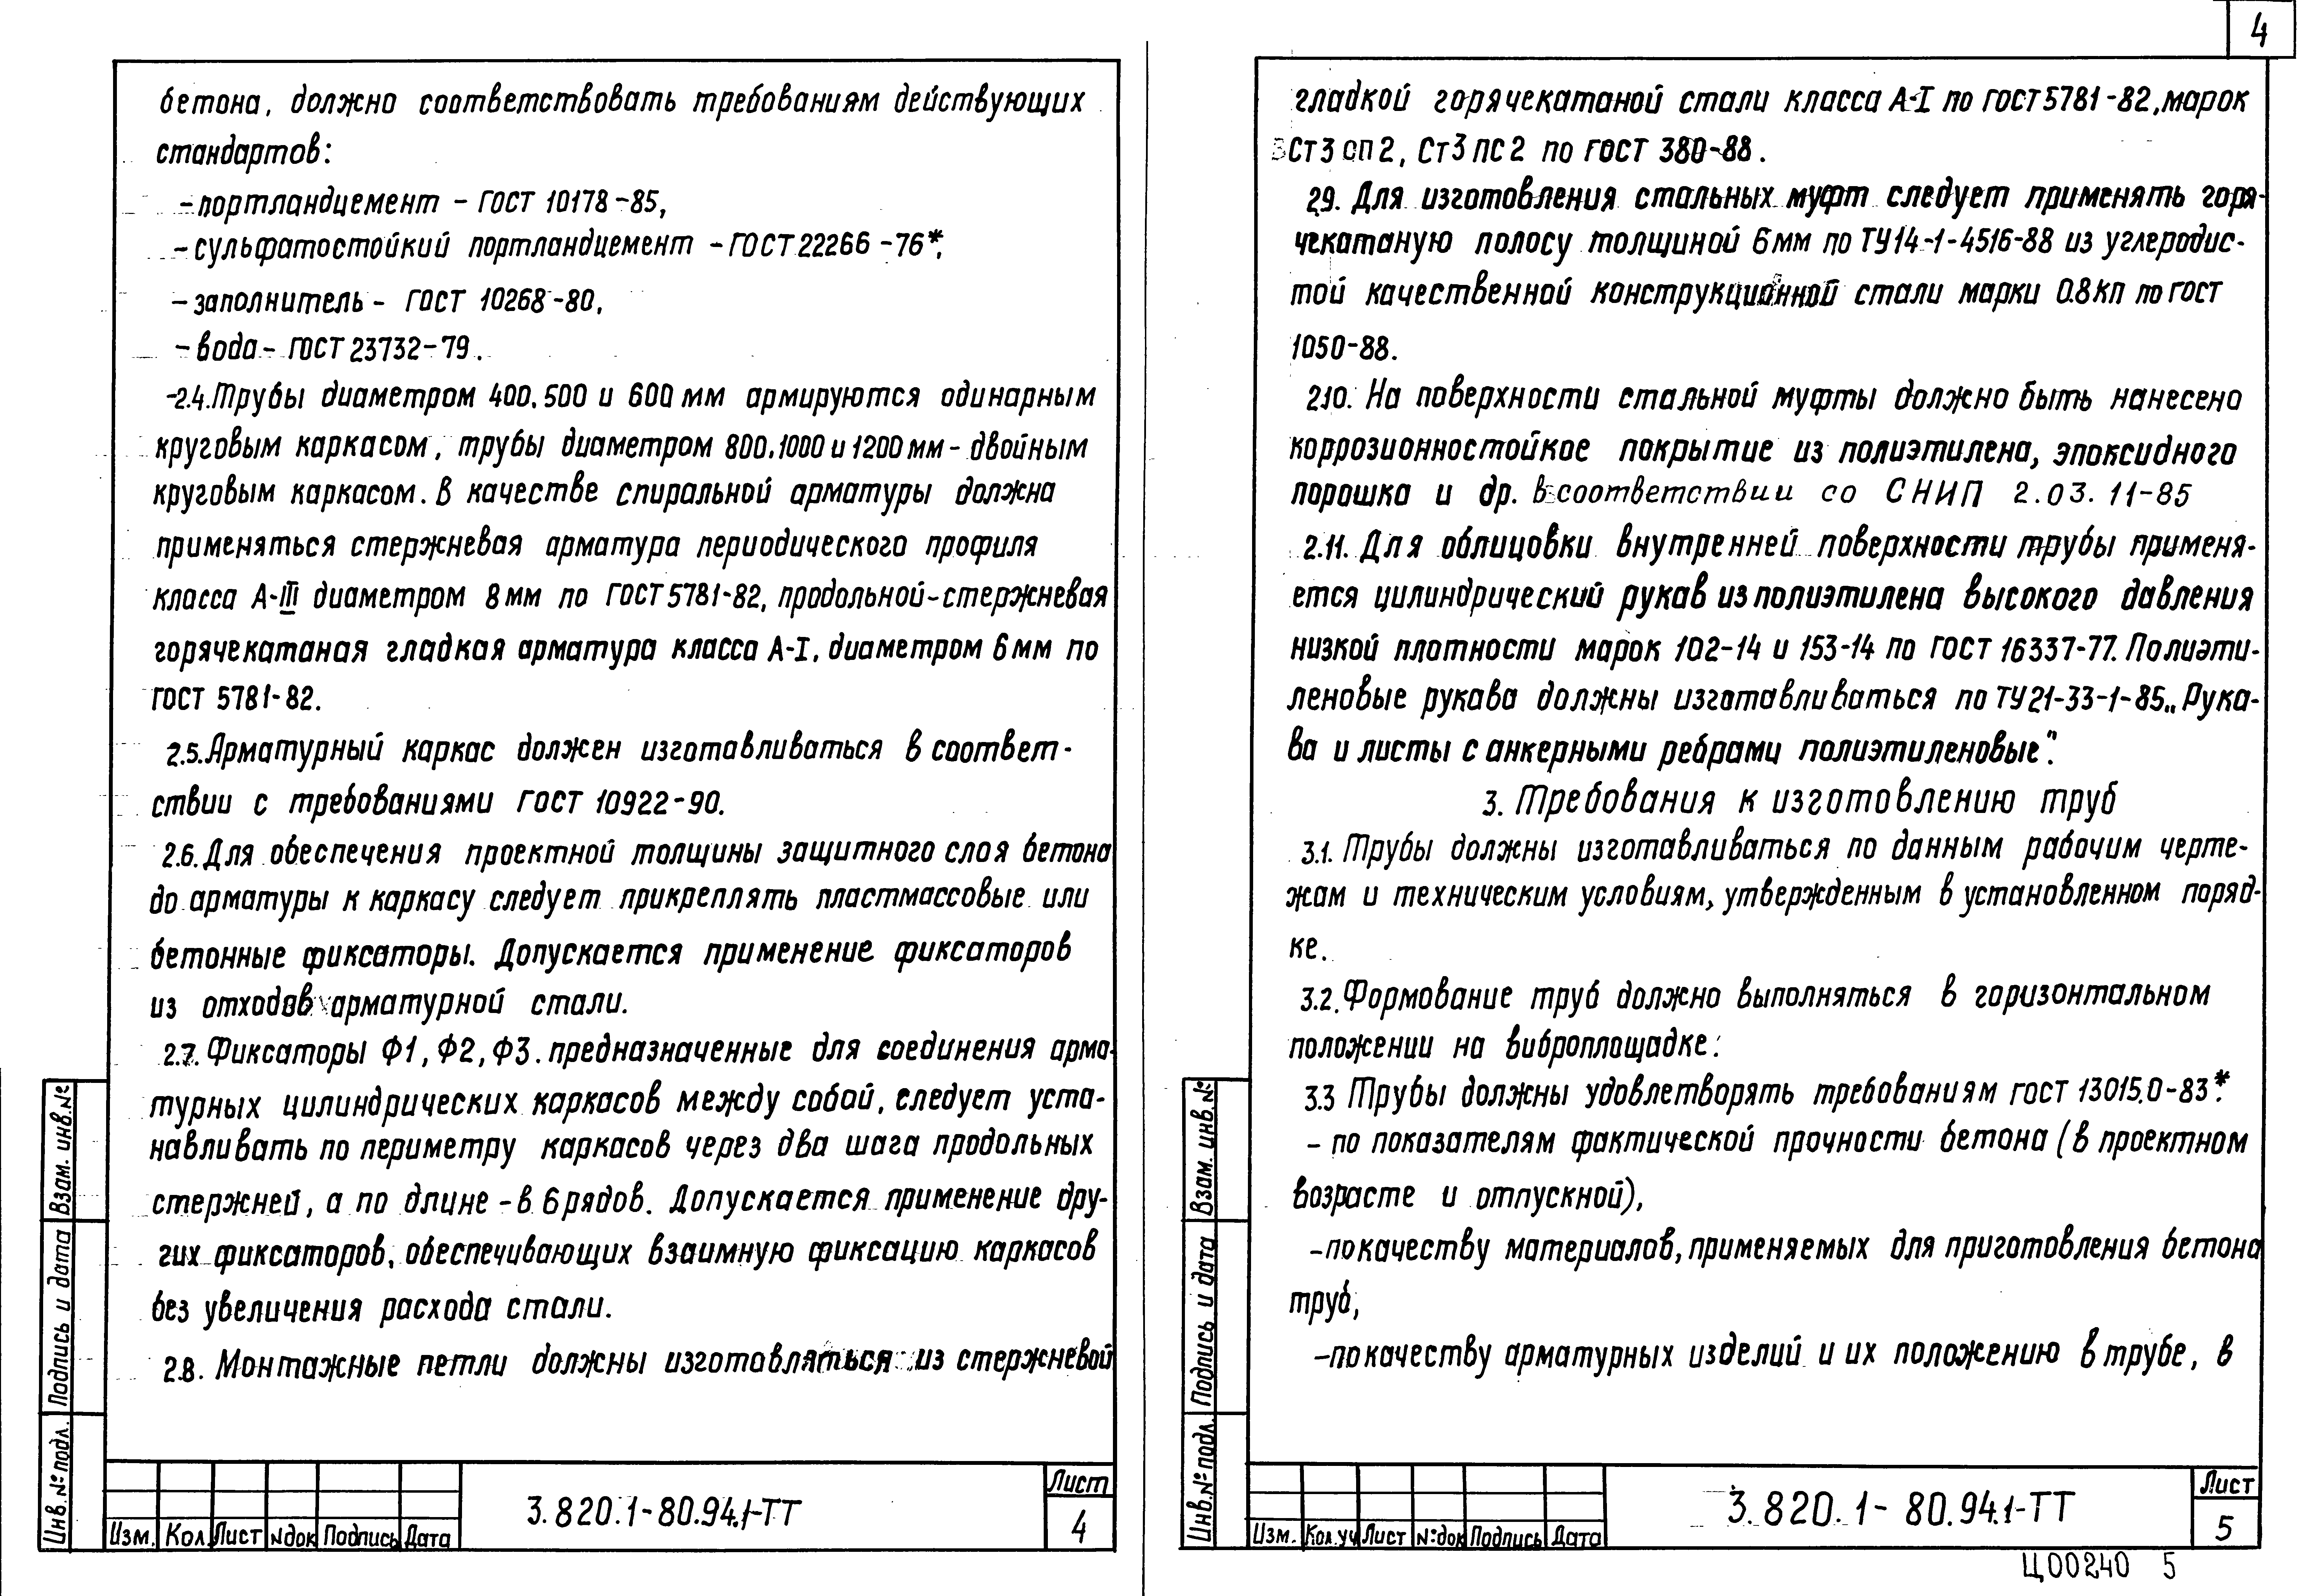 4
бетона, должно соответствовать требованиям действующих
стандартов:
- портландцемент - ГОСТ 10178-85,
- сульфатостойкий портландцемент - ГОСТ 22266-76*,
- заполнитель - ГОСТ 10268-80,
- вода - ГОСТ 23732-79.
2.4. Трубы диаметром 400, 500 и 600 мм армируются одинарным
круговым каркасом, трубы диаметром 800, 1000 и 1200 мм - двойным
круговым каркасом. В качестве спиральной арматуры должна
применяться стержневая арматура периодического профиля
класса А-III диаметром 8 мм по ГОСТ 5781-82, продольной - стержневая
горячекатаная гладкая арматура класса А-I, диаметром 6 мм по
ГОСТ 5781-82.
2.5. Арматурный каркас должен изготавливаться в соответ-
ствии с требованиями ГОСТ 10922-90.
2.6. Для обеспечения проектной толщины защитного слоя бетона
до арматуры к каркасу следует прикреплять пластмассовые или
бетонные фиксаторы. Допускается применение фиксаторов
из отходов арматурной стали.
2.7. Фиксаторы Ф1, Ф2, Ф3. предназначенные для соединения арма-
турных цилиндрических каркасов между собой, следует уста-
навливать по периметру каркасов через два шага продольных
стержней, а по длине - в 6 рядов. Допускается применение дру-
гих фиксаторов, обеспечивающих взаимную фиксацию каркасов
без увеличения расхода стали.
2.8. Монтажные петли должны изготовляться из стержневой
Взам. инв. №
Подпись и дата
Инв. № подл.
Изм. Кол Лист №док Подпись Дата
3.820.1-80.94.1-ТТ
Лист
4
гладкой горячекатаной стали класса А-I по ГОСТ 5781-82, марок
Ст3сп2, Ст3пс2 по ГОСТ 380-88.
2.9. Для изготовления стальных муфт следует применять горя-
чекатаную полосу толщиной 6 мм по ТУ 14-1-4516-88 из углеродис-
той качественной конструкционной стали марки 0.8кп по ГОСТ
1050-88.
2.10. На поверхности стальной муфты должно быть нанесено
коррозионностойкое покрытие из полиэтилена, эпоксидного
порошка и др. в соответствии со СНИП 2.03.11-85
2.11. Для облицовки внутренней поверхности трубы применя-
ется цилиндрический рукав из полиэтилена высокого давления
низкой плотности марок 102-14 и 153-14 по ГОСТ 16337-77. Полиэти-
леновые рукава должны изготавливаться по ТУ 21-33-1-85 „Рука-
ва и листы с анкерными ребрами полиэтиленовые".
3. Требования к изготовлению труб
3.1. Трубы должны изготавливаться по данным рабочим черте-
жам и техническим условиям, утвержденным в установленном поряд-
ке.
3.2. Формование труб должно выполняться в горизонтальном
положении на виброплощадке.
3.3 Трубы должны удовлетворять требованиям ГОСТ 13015.0-83*:
- по показателям фактической прочности бетона (в проектном
возрасте и отпускной),
- по качеству материалов, применяемых для приготовления бетона
труб,
- по качеству арматурных изделий и их положению в трубе, в
Взам. инв. №
Подпись и дата
Инв. № подл.
Изм. Кол.уч Лист №док Подпись Дата
3.820.1-80.94.1-ТТ
Лист
5
Ц00240 5